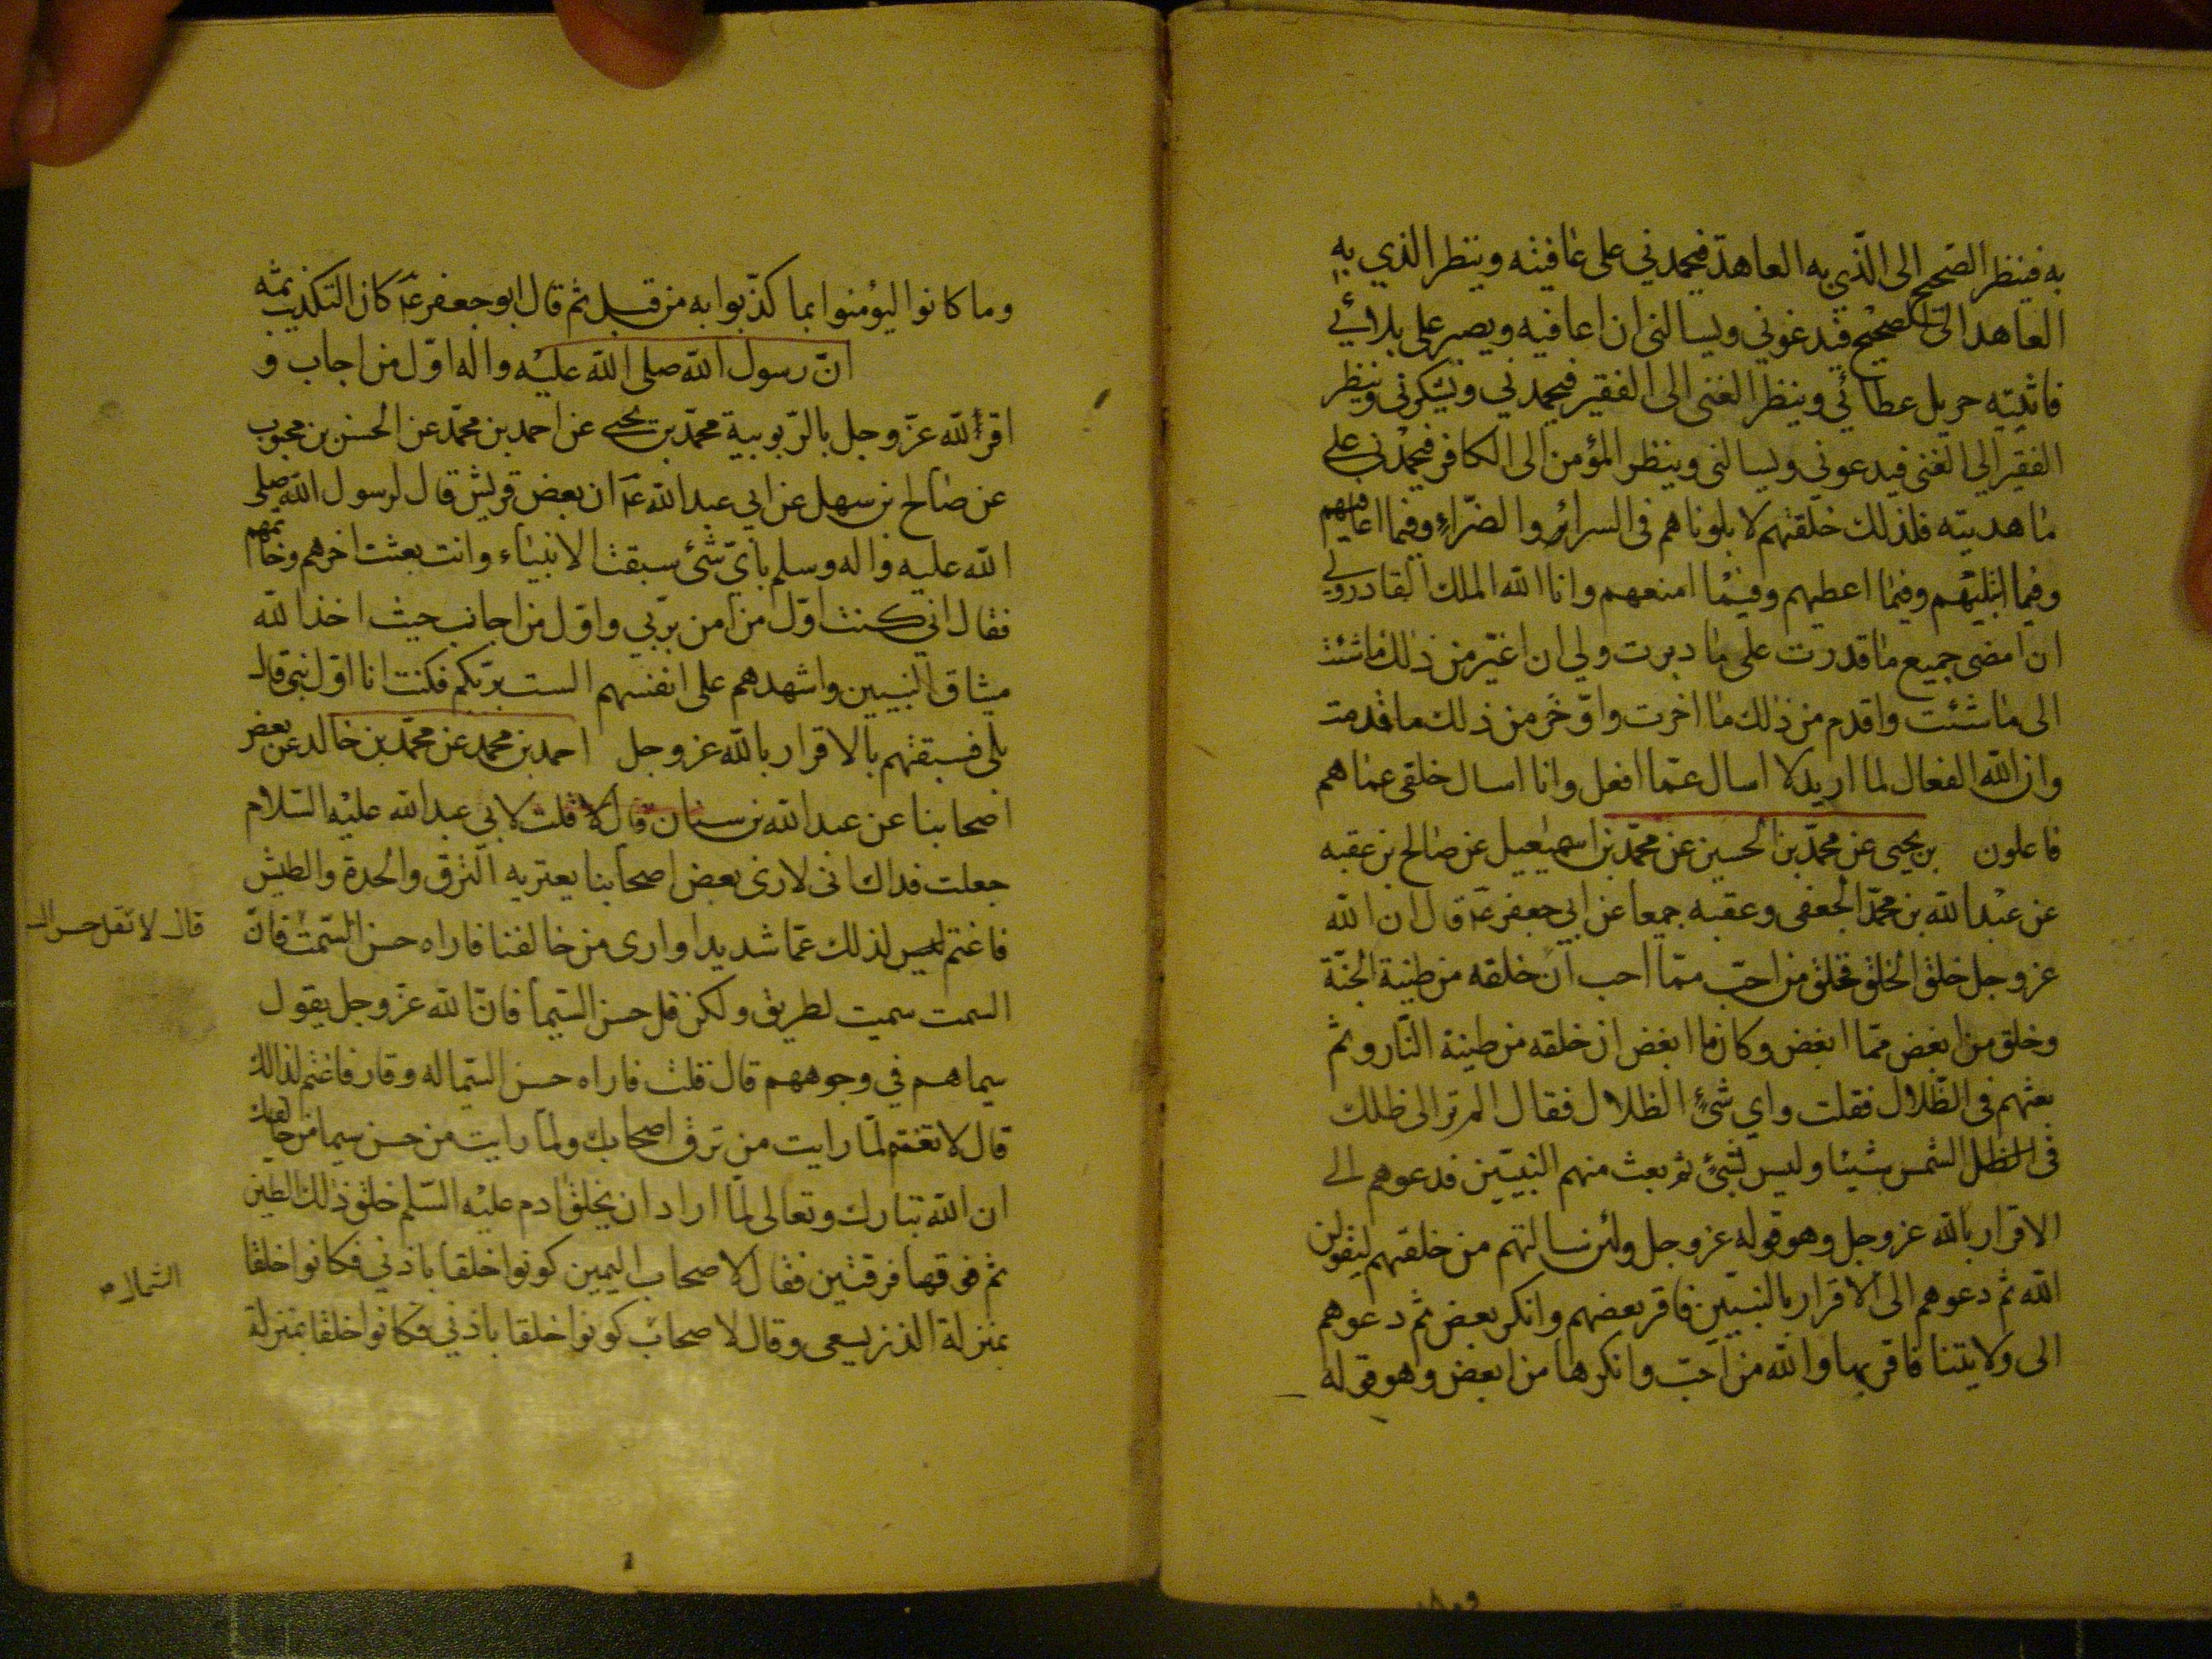 به فينظر الصحيح الى الذي به العاهة فيحمدني على عافيته وينظر الذي به
العاهد الى الصحيح فيدعوني ويسالنى ان اعافيه ويصبر على بلائي
فاثيبه جزيل عطائي وينظر الغنى الى الفقير فيحمدني ويشكرنى وينظر
الفقير الى الغنى فيدعونى ويسالنى وينظر المؤمن الى الكافر فيحمدنى على
ما هديته فلذلك خلقتهم لابلوناهم فى السرائر والضراء وفيما اعافيهم
وفيما ابتليتهم وفيما اعطيهم وفيما امنعهم وانا الله الملك القادر ولى
ان امضى جميع ما قدرت على ما دبرت ولي ان اغير من ذلك ما شئت
الى ما شئت واقدم من ذلك ما اخرت واوخر من ذلك ما قدمت
وان الله الفعال لما اريد لا اسال عما افعل وانا اسال خلقى عما هم
فاعلون بن يحيى عن محمد بن الحسين عن محمد بن اسمعيل عن صالح بن عقبه
عن عبد الله بن محمد الجعفى وعقبه جميعا عن ابي جعفر ع قال ان الله
عز وجل خلق الخلق فخلق من احب مما احب ان خلقه من طينة الجنة
وخلق من ابغض مما ابغض وكان ما ابغض ان خلقه من طينة النار و ثم
بعثهم فى الظلال فقلت واي شئ الظلال فقال الم تر الى ظلك
فى الظل الشمس شيئا وليس بشئ ثم بعث منهم النبيين فدعوهم الى
الاقرار بالله عز وجل وهو قوله عز وجل ولئن سالتهم من خلقهم ليقولن
الله ثم دعوهم الى الاقرار بالنبيين فاقر بعضهم وانكر بعض ثم دعوهم
الى ولايتنا فاقر بها والله من احب وانكرها من ابغض وهو قوله
وما كانوا ليؤمنوا بما كذبوا به من قبل ثم قال ابو جعفر ع كان التكذيب ثمه
ان رسول الله صلى الله عليه واله اول من اجاب و
اقر لله عز وجل بالربوبية محمد بن يحيى عن احمد بن محمد عن الحسن بن محبوب
عن صالح بن سهل عن ابي عبد الله ع ان بعض قريش قال لرسول الله صلى
الله عليه واله وسلم باى شئ سبقت الانبياء وانت بعثت اخرهم وخاتمهم
فقال اني كنت اول من امن بربي واول من اجاب حيث اخذ الله
ميثاق النبيين واشهدهم على انفسهم الست بربكم فكنت انا اول نبى قال
بلى فسبقتهم بالاقرار بالله عز وجل احمد بن محمد عن محمد بن خالد عن بعض
اصحابنا عن عبد الله بن سنان قال قلت لابي عبد الله عليه السلام
جعلت فداك انى لارى بعض اصحابنا يعتريه النزق والحدة والطيش
فاغتم لذلك غما شديدا وارى من خالفنا فاراه حسن السمت فان
السمت سميت لطريق ولكن قل حسن السيما فان الله عز وجل يقول
سيماهم في وجوههم قال قلت فاراه حسن السيما له وقار فاغتم لذلك
قال لا تغتم لما رايت من نزق اصحابك ولما رايت من حسن سيما من خالفك
ان الله تبارك وتعالى لما اراد ان يخلق ادم عليه السلم خلق ذلك الطين
ثم فرقها فرقتين فقال لاصحاب اليمين كونوا خلقا باذني فكانوا خلقا
بمنزلة الذر يسعى وقال لاصحاب كونوا خلقا باذني فكانوا خلقا بمنزلة
قال لا تقل حسن
الشمال